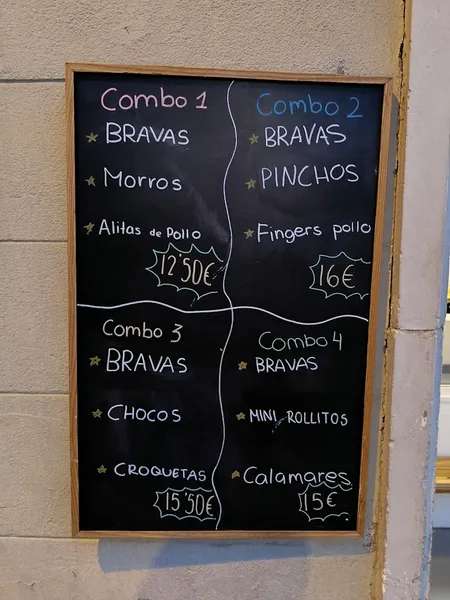 Combo 1
BRAVAS
Morros
Alitas de Pollo
12'50€
Combo 2
BRAVAS
PINCHOS
Fingers pollo
16€
Combo 3
BRAVAS
CHOCOS
CROQUETAS
15'50€
Combo 4
BRAVAS
MINI ROLLITOS
Calamares
15€